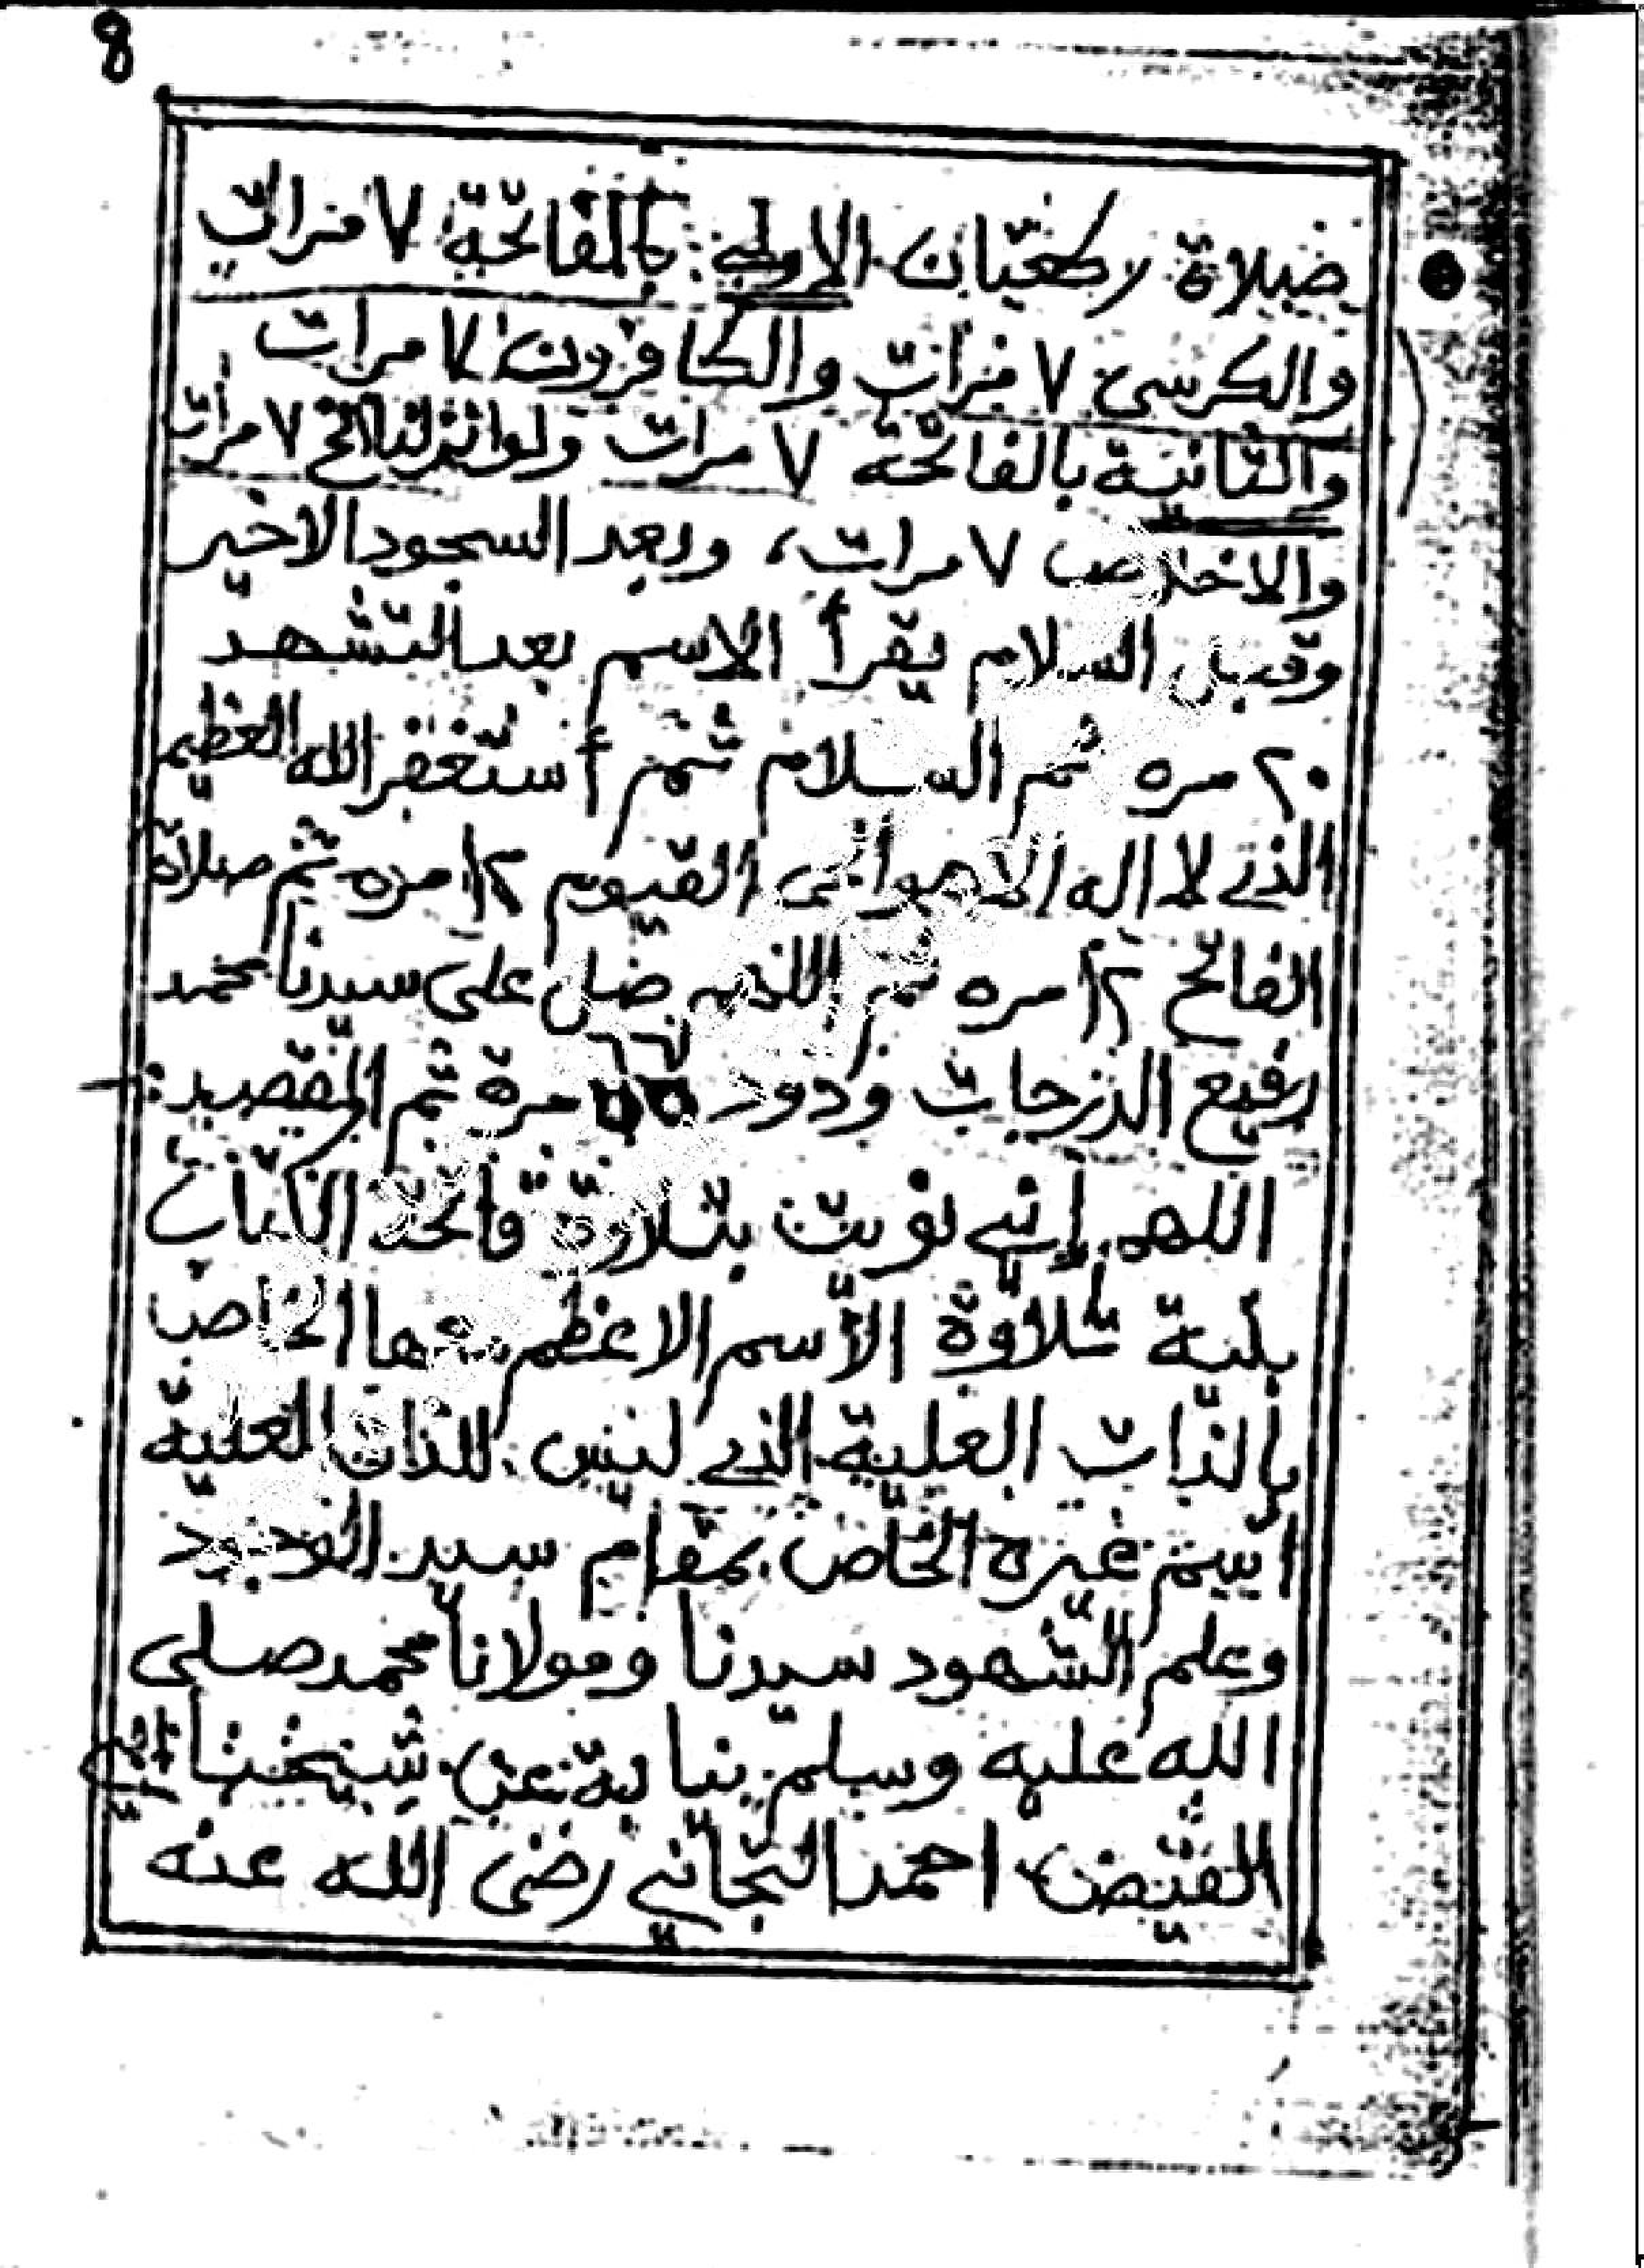 8
صلاة ركعتان الاولى: بالفاتحة ٧ مرات
والكرسي ٧ مرات والكافرون ٧ مرات
والثانية بالفاتحة ٧ مرات ولو انزلنا الخ ٧ مرات
والاخلاص ٧ مرات، وبعد السجود الاخير
وقبل السلام يقرأ الاسم بعد التشهد
٢٠ مره ثم السلام ثم أستغفر الله العظيم
الذي لا اله الا هو الحي القيوم ١٢ مره ثم صلاة
الفاتح ١٢ مره ثم اللهم صل على سيدنا محمد
رفيع الدرجات ودود مرة ثم المقصد:
اللهم إني نويت بتلاوة فاتحة الكتاب
بنية تلاوة الاسم الاعظم معها الخاص
بالذات العلية الذي ليس للذات العلية
اسم غيره الخاص بمقام سيد الوجود
وعلم الشهود سيدنا ومولانا محمد صلى
الله عليه وسلم نيابة عن شيخنا ابي
الفيض احمد التجاني رضى الله عنه